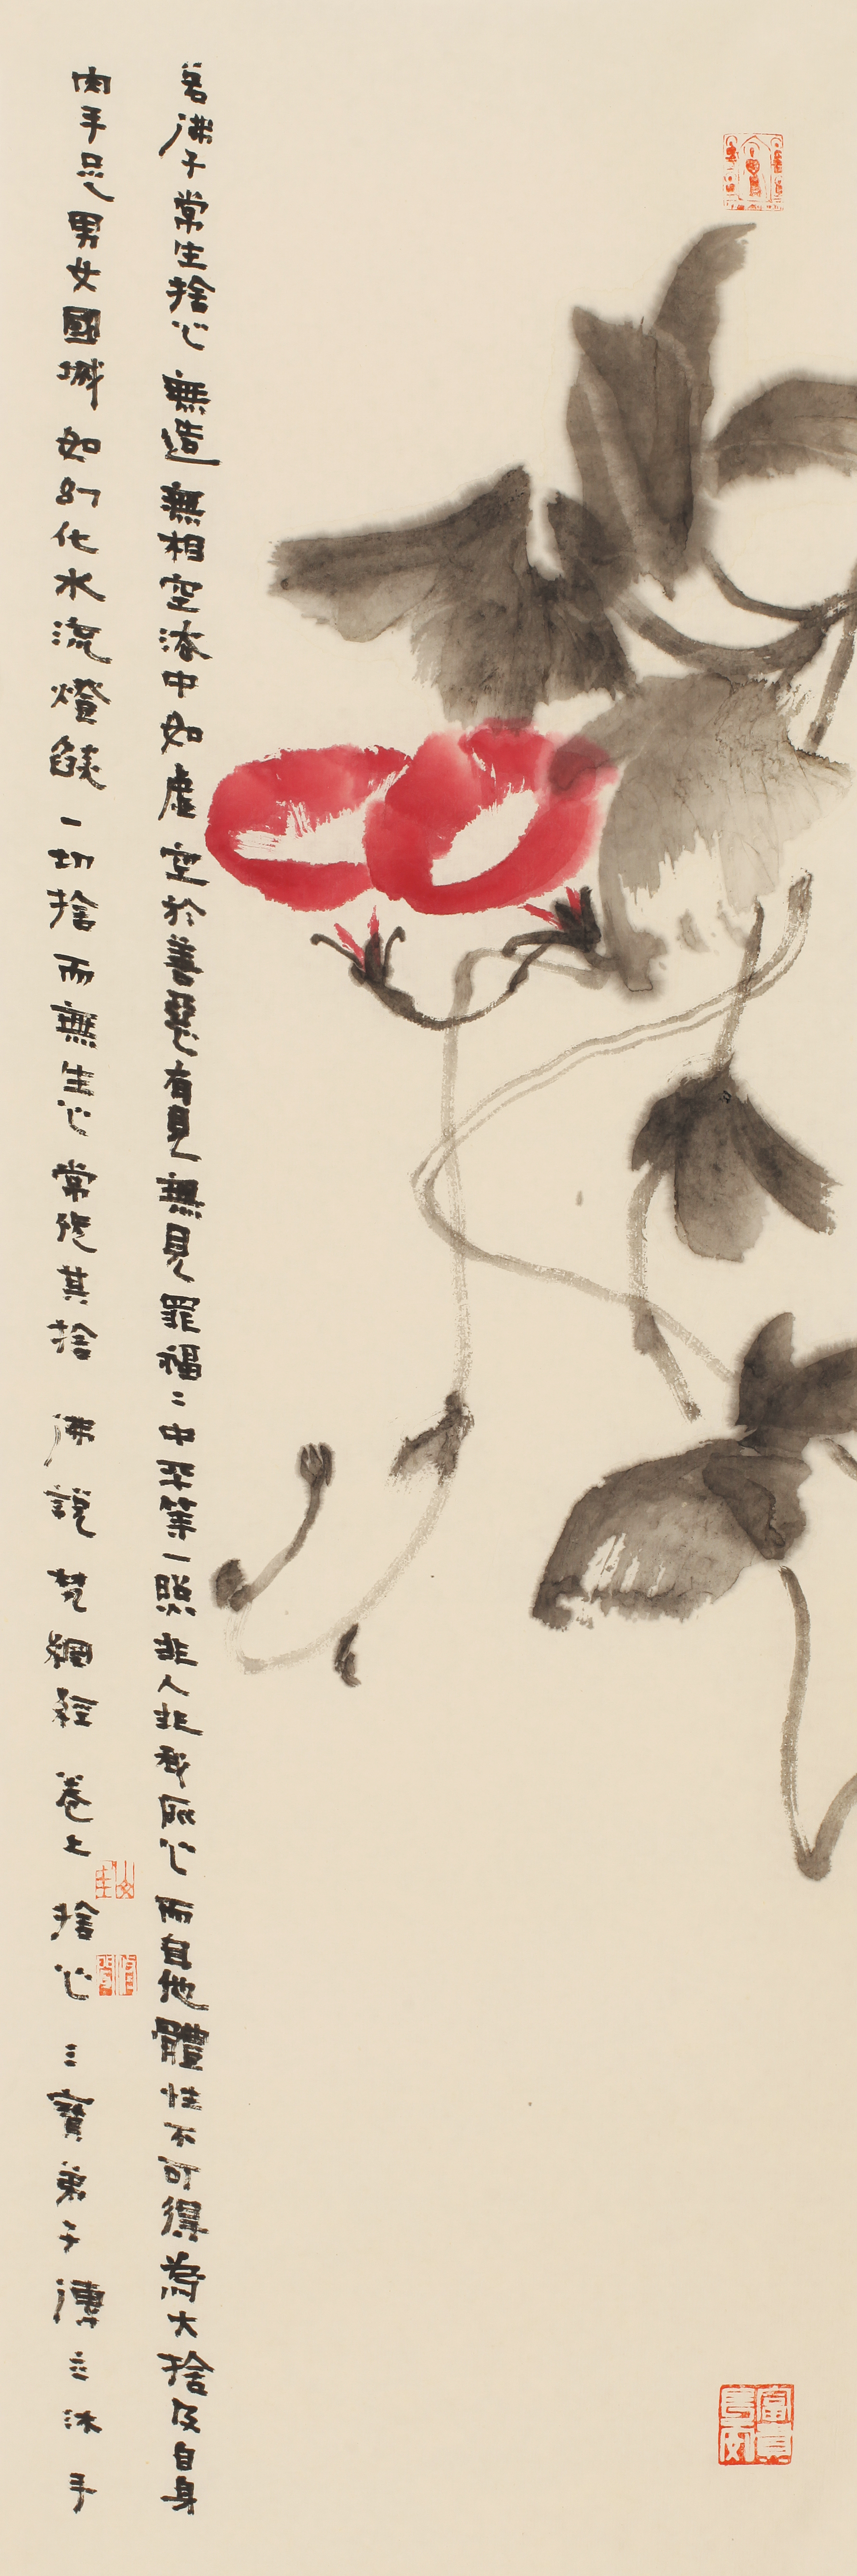 若佛子常生捨心無造無相空法中如虛空於善惡有見無見罪福二中平等一照非人非我所心而自他體性不可得為大捨及自身
肉手足男女國城如幻化水流燈焰一切捨而無生心常修其捨 佛說梵網經卷上捨心 三寶弟子 沐手
富貴